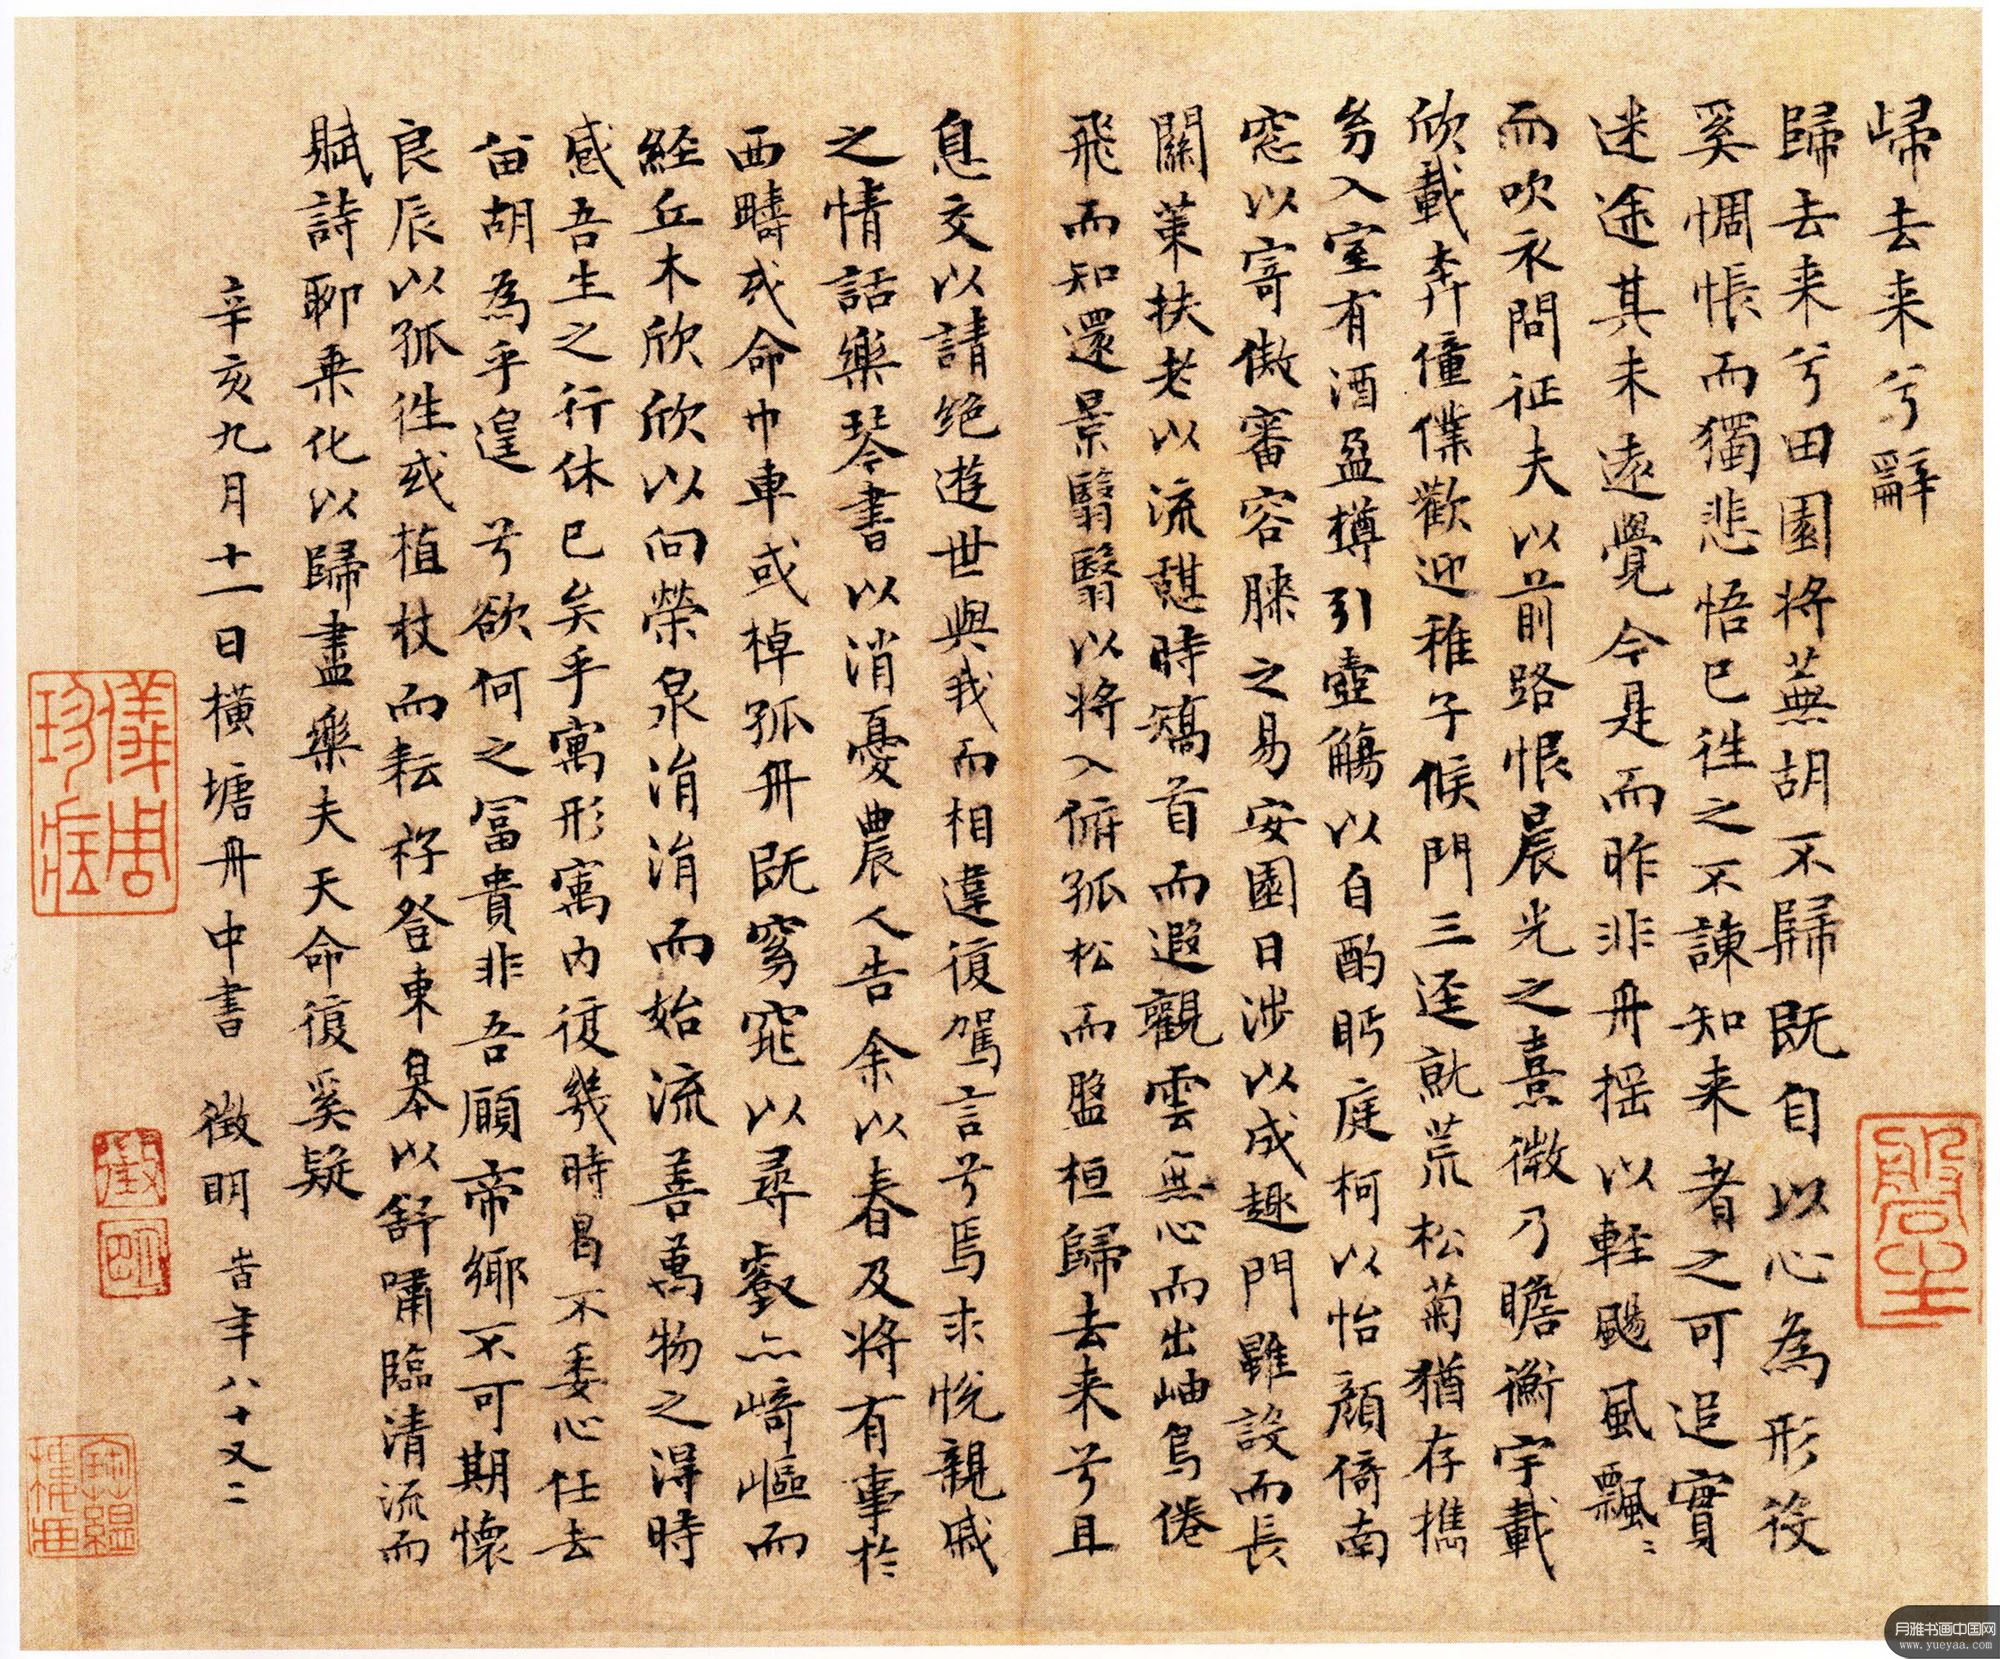 歸去来兮辭
歸去来兮田園将蕪胡不歸既自以心為形役
奚惆悵而獨悲悟已往之不諫知来者之可追實
迷途其未遠覺今是而昨非舟摇以輕颺風飄〻
而吹衣問征夫以前路恨晨光之熹微乃瞻衡宇載
欣載奔僮僕歡迎稚子候門三逕就荒松菊猶存携
㓜入室有酒盈樽引壺觴以自酌眄庭柯以怡顔倚南
窓以寄傲審容膝之易安園日涉以成趣門雖設而長
關策扶老以流憩時矯首而遐觀雲無心而出岫鳥倦
飛而知還景翳翳以将入俯孤松而盤桓歸去来兮且
息交以請絶遊世與我而相違復駕言兮焉求悦親戚
之情話樂琴書以消憂農人告余以春及将有事於
西疇或命巾車或棹孤舟既窈窕以尋壑亦崎嶇而
経丘木欣欣以向榮泉涓涓而始流善萬物之得時
感吾生之行休已矣乎寓形寓内復幾時曷不委心任去
留胡為乎遑兮欲何之冨貴非吾願帝鄉不可期懷
良辰以孤往或植杖而耘耔登東皋以舒嘯臨清流而
賦詩聊乗化以歸盡樂夫天命復奚疑
辛亥九月十一日横塘舟中書 徴明 旹年八十又二
徵
明
月雅书画中国网
www.yueyaa.com